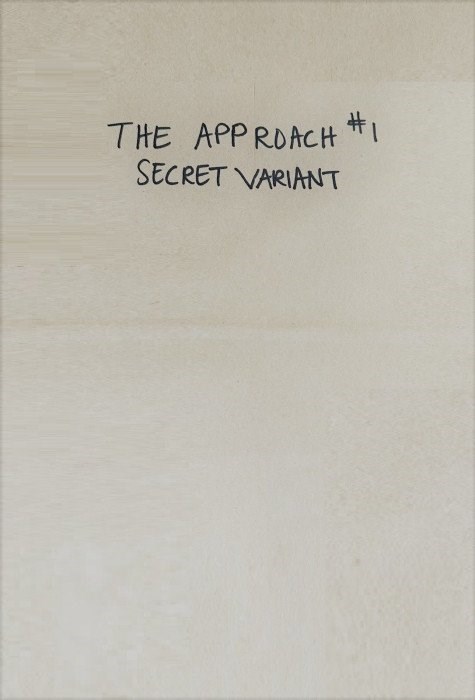 THE APPROACH #1
SECRET VARIANT